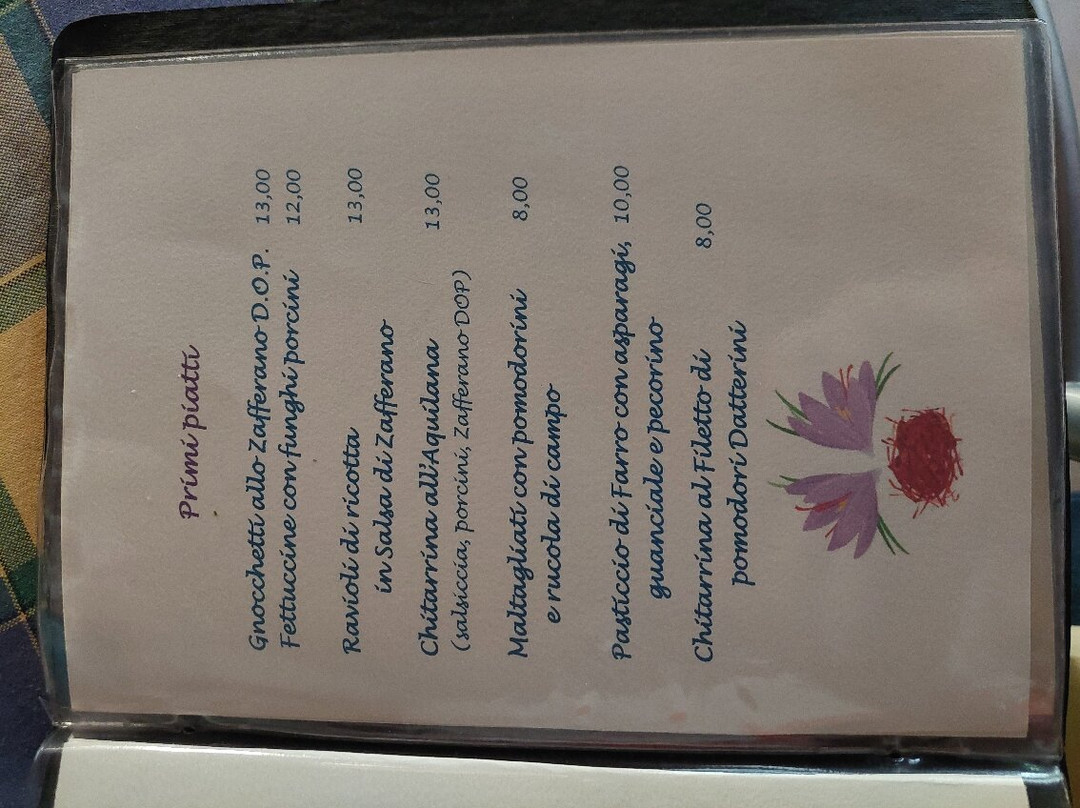 Primi piatti
Gnocchetti allo Zafferano D.O.P. 13,00
Fettuccine con funghi porcini 12,00
Ravioli di ricotta 13,00
in Salsa di Zafferano
Chitarrina all'Aquilana 13,00
(salsiccia, porcini, Zafferano DOP)
Maltagliati con pomodorini 8,00
e rucola di campo
Pasticcio di Farro con asparagi, 10,00
guanciale e pecorino
Chitarrina al Filetto di 8,00
pomodori Datterini